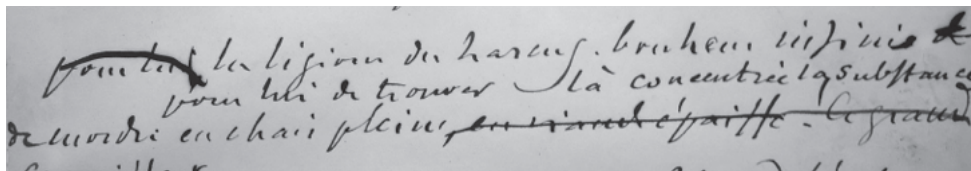 pour lui la légion du hareng. bonheur infini de
pour lui de trouver là concentrée la substance
de mordre en chair pleine, en viande épaisse. Le grand